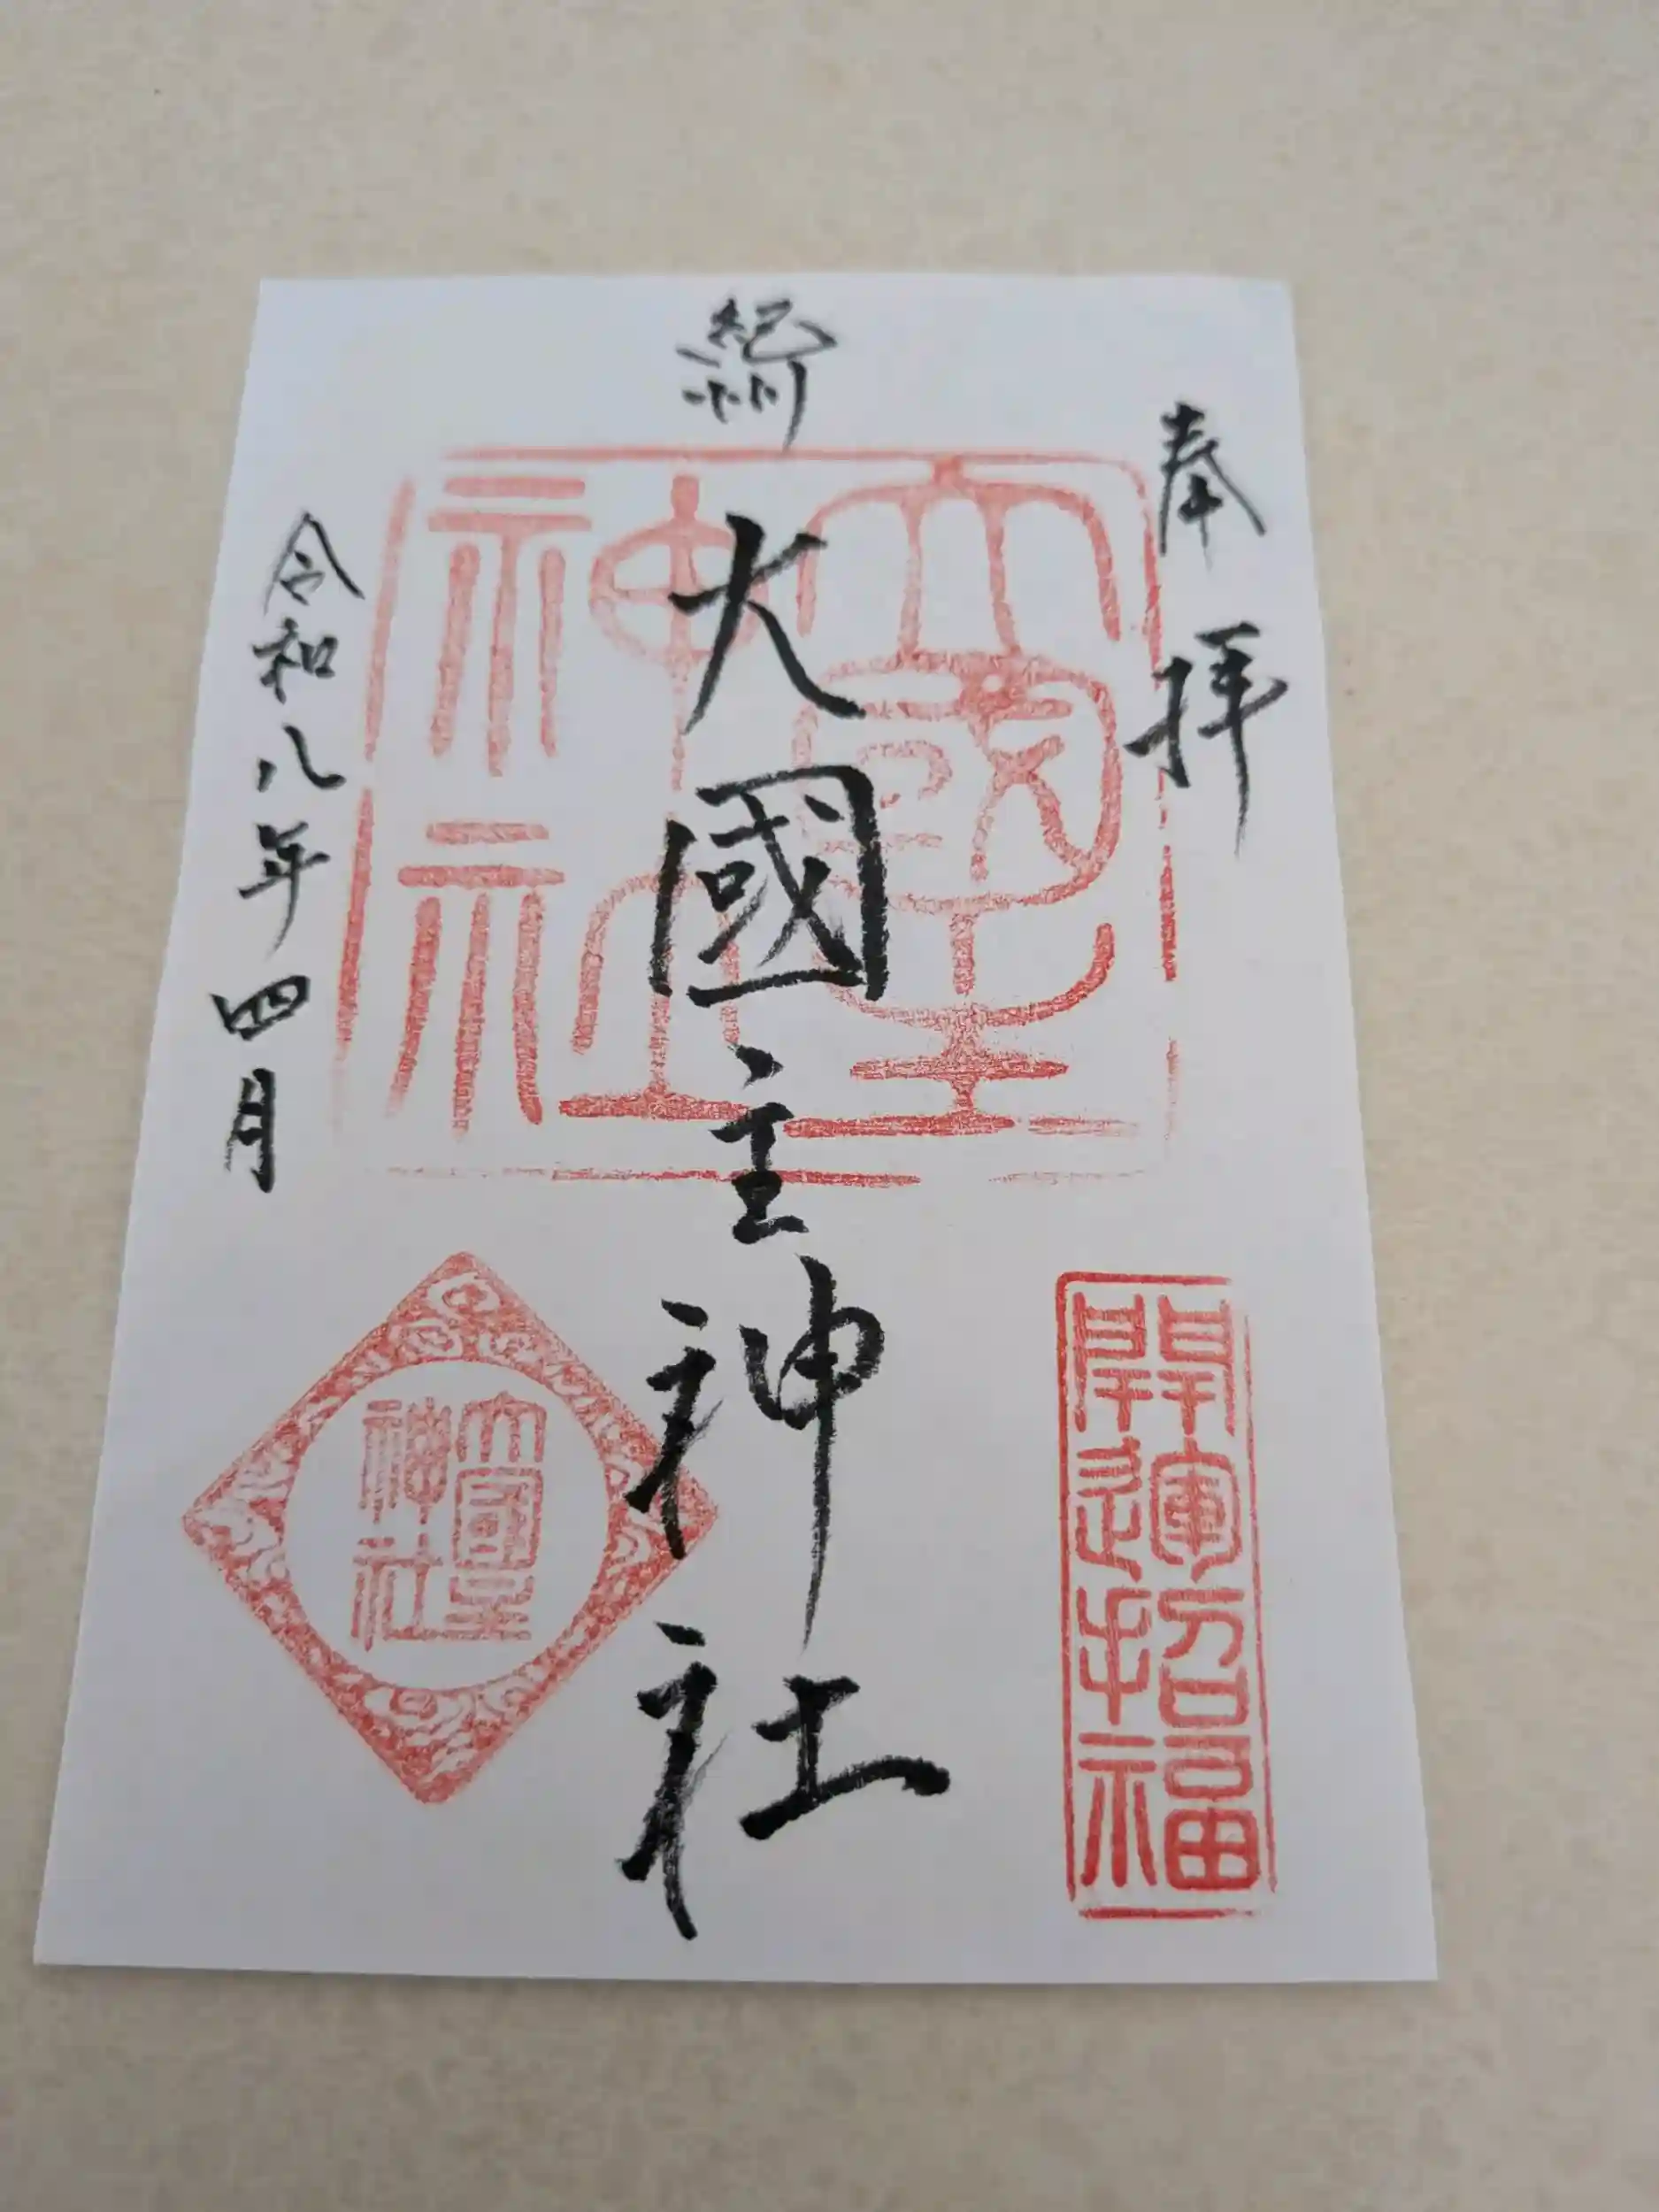 奉拝
紀州
大國主神社
令和八年四月
大國主
神社
開運招福
大國主
神社